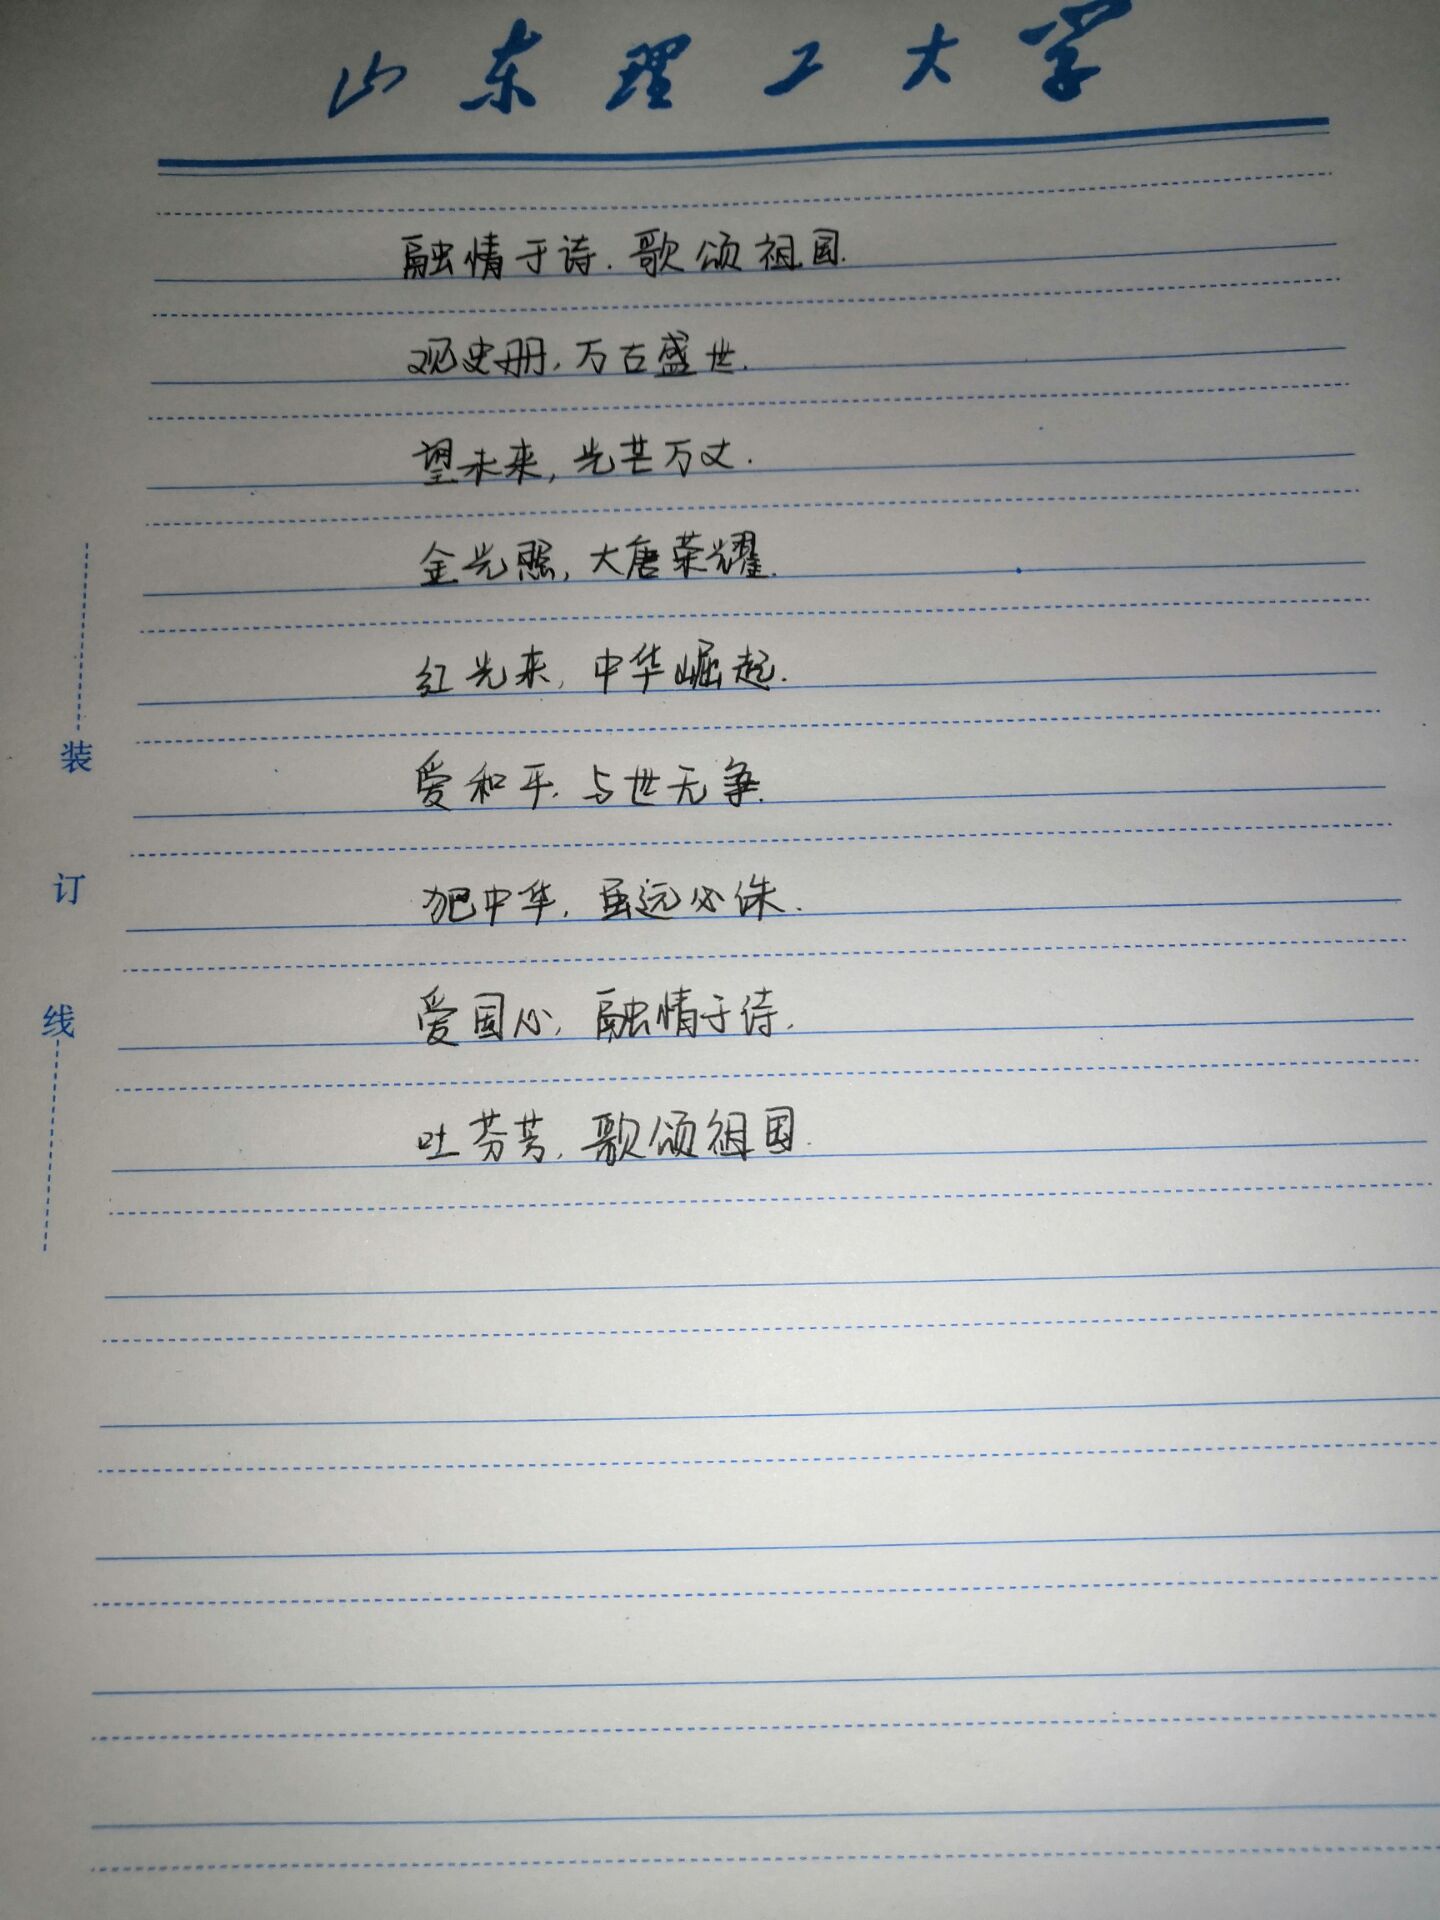 山东理工大学
融情于诗.歌颂祖国.
观史册,万古盛世.
望未来,光芒万丈.
金光照,大唐荣耀.
红光来,中华崛起.
爱和平.与世无争.
犯中华,虽远必诛.
爱国心,融情于诗.
吐芬芳,歌颂祖国.
装
订
线